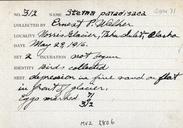 NO. 312 NAME Sterna paradisaea
COLLECTOR Ernest P. Walker
LOCALITY Norris Glacier, Taku Inlet, Alaska
DATE May 28, 1916.
SET 2 INCUBATION not begun
IDENTITY Bird collected
NEST depression in fine sand on flat
in front of glacier.
Eggs marked 71
3/2
MVZ 2806